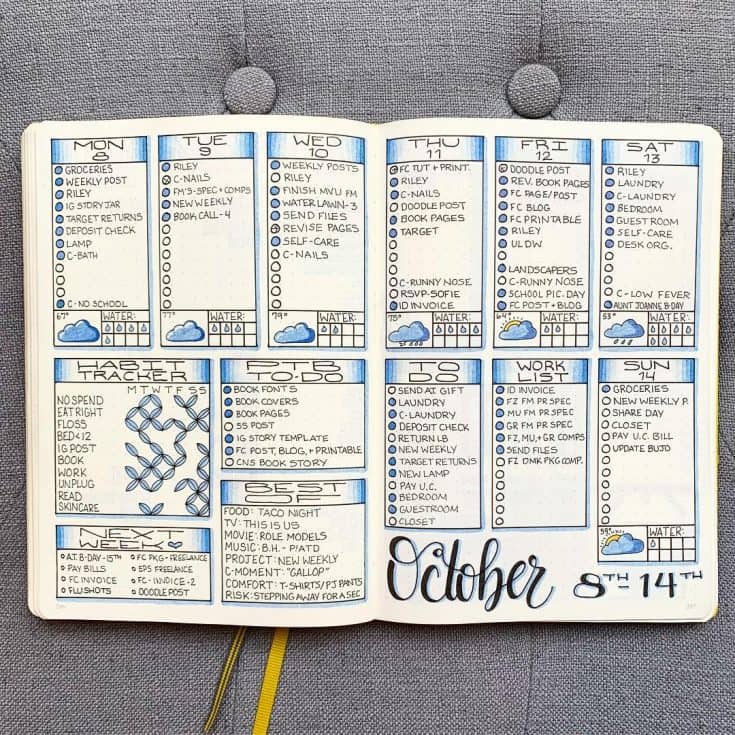 MON
8
GROCERIES
WEEKLY POST
RILEY
IG STORY JAR
TARGET RETURNS
DEPOSIT CHECK
LAMP
C-BATH
C-NO SCHOOL
67°
WATER:
TUE
9
RILEY
C-NAILS
FM'S-SPEC+COMPS
NEW WEEKLY
BOOK CALL-4
77°
WATER:
WED
10
WEEKLY POSTS
RILEY
FINISH MVU FM
WATER LAWN-3
SEND FILES
REVISE PAGES
SELF-CARE
C-NAILS
79°
WATER:
THU
11
FC TUT + PRINT.
RILEY
C-NAILS
DOODLE POST
BOOK PAGES
TARGET
C-RUNNY NOSE
RSVP-SOFIE
ID INVOICE
75°
WATER:
FRI
12
DOODLE POST
REV. BOOK PAGES
FC PAGE/POST
FC BLOG
FC PRINTABLE
RILEY
ULDW
LANDSCAPERS
C-RUNNY NOSE
SCHOOL PIC. DAY
FC POST + BLOG
64°
WATER:
SAT
13
RILEY
LAUNDRY
C-LAUNDRY
BEDROOM
GUEST ROOM
SELF-CARE
DESK ORG.
C-LOW FEVER
AUNT JOANNE B-DAY
53°
WATER:
HABIT
TRACKER
M T W T F S S
NO SPEND
EAT RIGHT
FLOSS
BED<12
IG POST
BOOK
WORK
UNPLUG
READ
SKINCARE
TO-DO
BOOK FONTS
BOOK COVERS
BOOK PAGES
SS POST
IG STORY TEMPLATE
FC POST, BLOG, + PRINTABLE
CNS BOOK STORY
TO
DO
SEND AT GIFT
LAUNDRY
C-LAUNDRY
DEPOSIT CHECK
RETURN LB
NEW WEEKLY
TARGET RETURNS
NEW LAMP
PAY U.C.
BEDROOM
GUESTROOM
CLOSET
WORK
LIST
ID INVOICE
FZ FM PR SPEC
MU FM PR SPEC
GR FM PR SPEC
FZ, MU, + GR COMPS
SEND FILES
FZ DMK PKG COMP.
SUN
14
GROCERIES
NEW WEEKLY P.
SHARE DAY
CLOSET
PAY U.C. BILL
UPDATE BUJO
WATER:
NEXT
WEEK
A.T. B-DAY-15TH
PAY BILLS
FC INVOICE
FLU SHOTS
FC PKG-FREELANCE
EPS FREELANCE
FC-INVOICE-2
DOODLE POST
BEST
OF
FOOD: TACO NIGHT
TV: THIS IS US
MOVIE: ROLE MODELS
MUSIC: B.H.-P!ATD
PROJECT: NEW WEEKLY
C-MOMENT: "GALLOP"
COMFORT: T-SHIRTS/PJ PANTS
RISK: STEPPING AWAY FOR A SEC
October 8TH-14TH